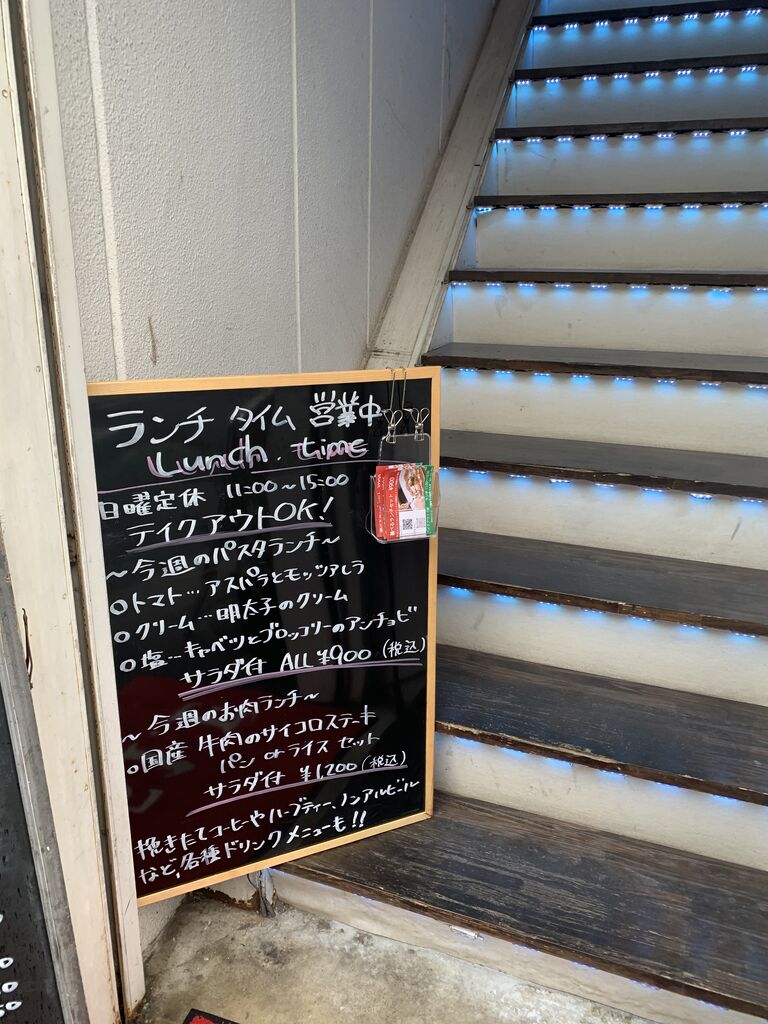 ランチ タイム 営業中
Lunch. time
日曜定休 11:00～15:00
テイクアウトOK!
～今週のパスタランチ～
○トマト…アスパラとモッツァレラ
○クリーム…明太子のクリーム
○塩…キャベツとブロッコリーのアンチョビ
サラダ付 ALL ¥900 (税込)
～今週のお肉ランチ～
○国産 牛肉のサイコロステーキ
パン or ライス セット
サラダ付 ¥1,200 (税込)
挽きたてコーヒーやハーブティー、ノンアルビール
など、各種ドリンクメニューも!!